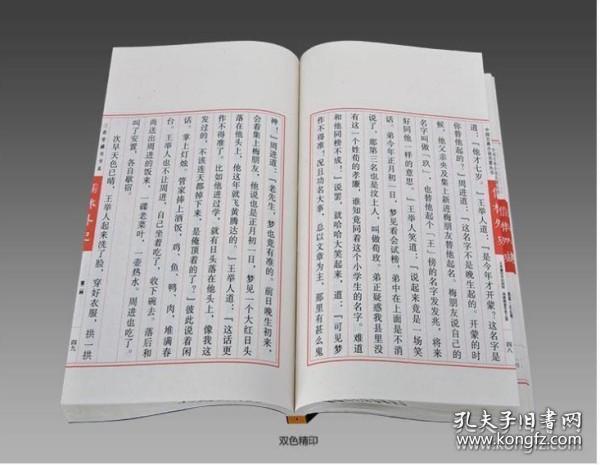 道：「他才七岁。」王举人道：「是今年才开蒙？这名字是
你替他起的？」周进道：「这名字不是晚生起的。开蒙的时
候，他父亲央及集上新进梅朋友替他起名。梅朋友说自己的
名字叫做『玖』，也替他起个『王』傍的名字发发兆，将来
好同他一样的意思。」王举人笑道：「说起来竟是一场笑
话。弟今年正月初一日，梦见看会试榜，弟中在上面是不消
说了，那第三名也是汶上人，叫做荀玫。弟正疑惑我县里没
有这一个姓荀的孝廉，谁知竟同着这个小学生的名字。难道
和他同榜不成！」说罢，就哈哈大笑起来，道：「可见梦
作不得准。况且功名大事，总以文章为主，那里有甚么鬼
四八
神！」周进道：「老先生，梦也竟有准的。前日晚生初来，
会着集上梅朋友，他说也是正月初一日，梦见一个大红日头
落在他头上，他这年就飞黄腾达的。」王举人道：「这话更
作不得准了。比如他进过学，就有日头落在他头上，像我这
发过的，不该连天都掉下来，是俺顶着的了？」彼此说着闲
话，掌上灯烛，管家捧上酒饭，鸡、鱼、鸭、肉，堆满春
台。王举人也不让周进，自己坐着吃了，收下碗去。落后和
尚送出周进的饭来，一碟老菜叶，一壶热水。周进也吃了。
叫了安置，各自歇宿。
次早天色已晴，王举人起来洗了脸，穿好衣服，拱一拱
儒林外史
四九
双色精印
孔夫子旧书网
www.kongfz.com